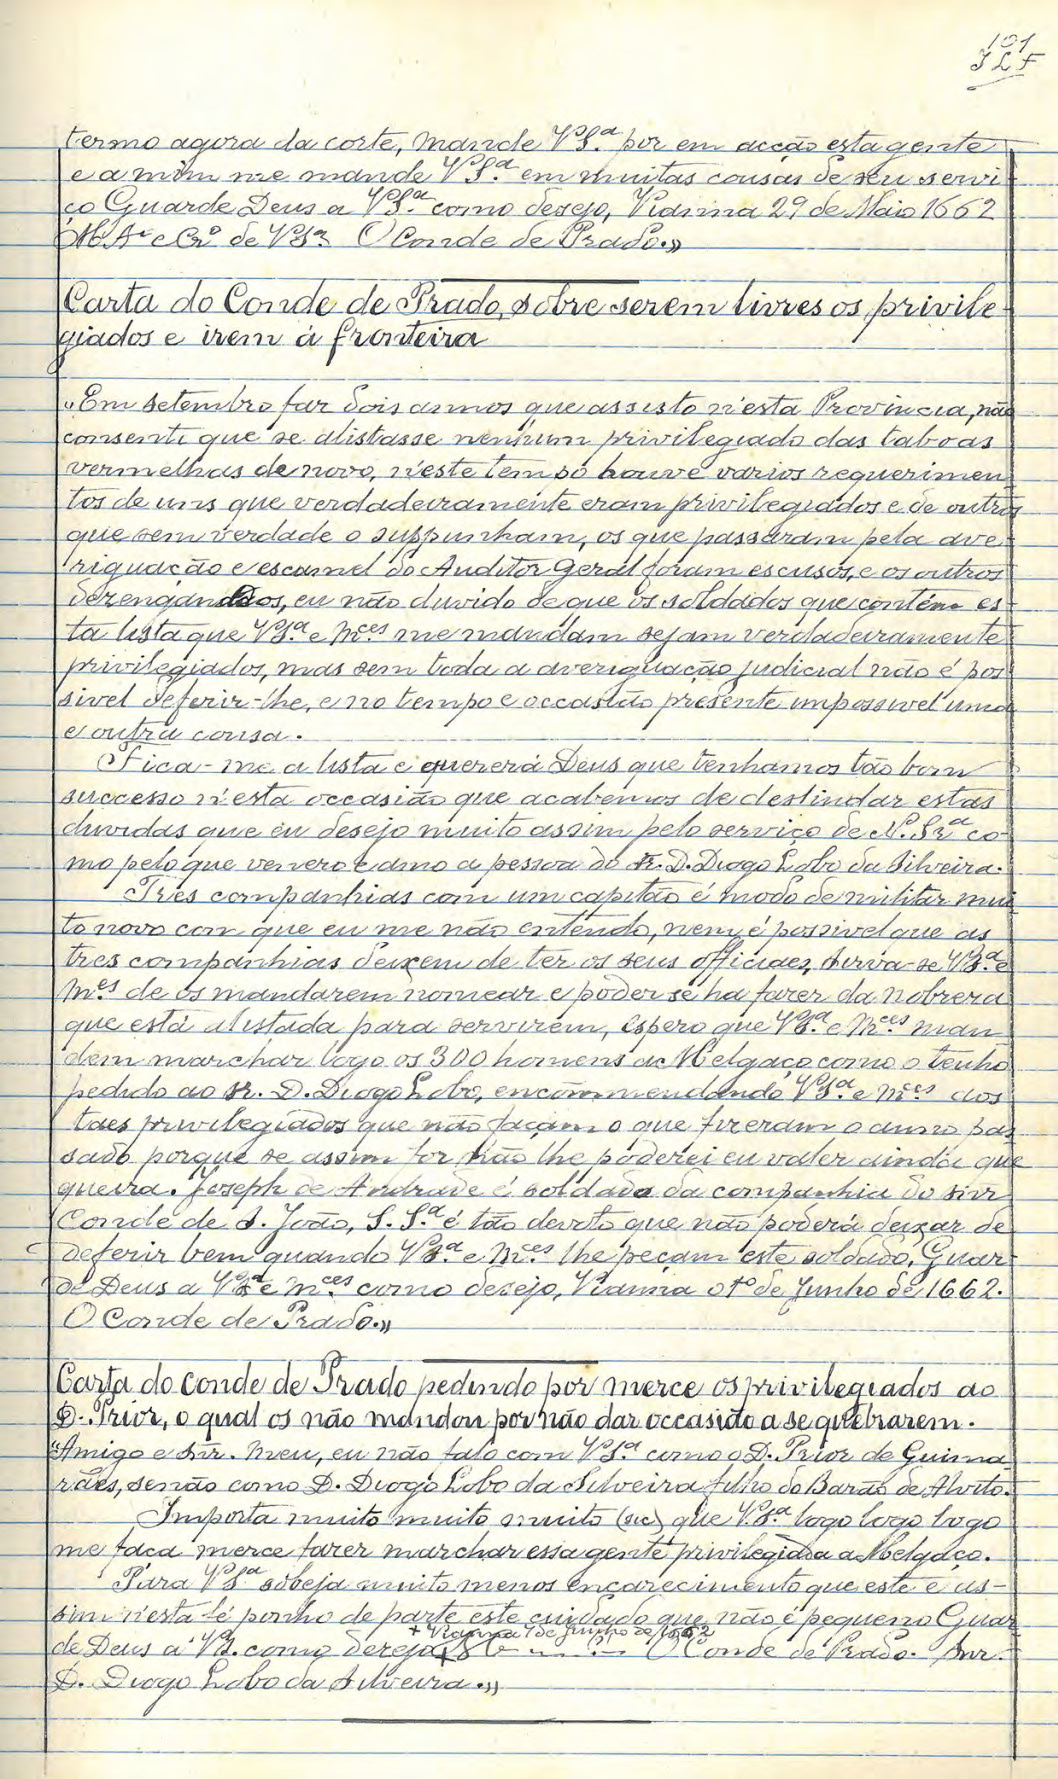 101
JLF
termo agora da corte, mande VSª. por em acção esta gente
e a mim me mande VSª. em muitas cousas de seu servi-
ço Guarde Deus a VSª. como desejo, Vianna 29 de Maio 1662
M. Aº e Crº de VSª O Conde de Prado.»
Carta do Conde de Prado, sobre serem livres os privile-
giados e irem á fronteira
«Em setembro faz dois annos que assisto n'esta Provincia, não
consenti que se alistasse nenhum privilegiado das taboas
vermelhas de novo, n'este tempo houve varios requerimen-
tos de uns que verdadeiramente eram privilegiados e de outros
que sem verdade o suppunham, os que passaram pela ave-
riguação e escamel do Auditor Geral foram escusos, e os outros
desenganados, eu não duvido de que os soldados que contém es-
ta lista que VSª. e Mces me mandam sejam verdadeiramente
privilegiados, mas sem toda a averiguação judicial não é pos-
sivel deferir-lhe, e no tempo e occasião presente impossivel uma
e outra cousa.
Fica-me a lista e quererá Deus que tenhamos tão bom
successo n'esta occasião que acabemos de deslindar estas
duvidas que eu desejo muito assim pelo serviço de N. Srª co-
mo pelo que venero e amo a pessoa do Sr. D. Diogo Lobo da Silveira.
Tres companhias com um capitão é modo de militar mui-
to novo com que eu me não entendo, nem é possivel que as
tres companhias deixem de ter os seus officiaes, sirva-se VSª. e
Mces de os mandarem nomear e poder se ha fazer da nobreza
que está alistada para servirem, espero que VSª. e Mces man-
dem marchar logo os 300 homens a Melgaço como o tenho
pedido ao Sr. D. Diogo Lobo, encommendando VSª. e Mces aos
taes privilegiados que não façam o que fizeram o anno pas-
sado porque se assim for não lhe poderei eu valer ainda que
queira. Joseph de Andrade é soldado da companhia do snr
Conde de S. João, S. Sª. é tão devoto que não poderá deixar de
deferir bem quando VSª. e Mces lhe peçam este soldado, Guar-
de Deus a VSª e Mces como desejo, Vianna o 1º de Junho de 1662.
O Conde de Prado.»
Carta do conde de Prado pedindo por merce os privilegiados ao
D. Prior, o qual os não mandou por não dar occasião a se quebrarem.
"Amigo e Snr. Meu, eu não falo com VSª. como o D. Prior de Guima-
rães, senão como D. Diogo Lobo da Silveira filho do Barão de Alvito.
Importa muito muito muito (sic) que V.Sª. logo logo logo
me faça merce fazer marchar essa gente privilegiada a Melgaço.
Para VSª. sobeja muito menos encarecimento que este e as-
sim n'esta fé ponho de parte este cuidado que não é pequeno Guar-
+ Vianna 1 de Junho de 1662
de Deus a VS. como desejo O Conde de Prado. Snr.
D. Diogo Lobo da Silveira.»